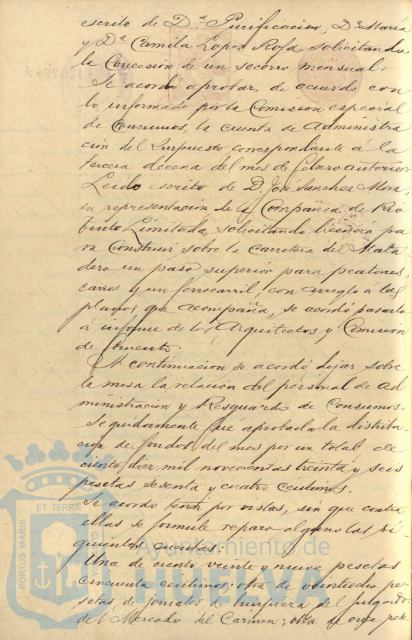 escrito de D.ª Purificacion, D.ª Maria
y D.ª Camila Lopez Rosa solicitando
la concesion de un socorro mensual.
Se acordó aprobar, de acuerdo con
lo informado por la Comision especial
de Consumos, la cuenta de Administra
cion del Impuesto correspondiente á la
tercera decena del mes de febrero anterior.
Leido escrito de D. José Sanchez Mora,
en representacion de la Compañia de Rio
tinto Limitada, solicitando licencia pa
ra construir sobre la carretera del Mata
dero un paso superior para peatones,
carros y un ferrocarril, con arreglo a los
planos que acompaña, se acordó pasarlo
á informe de los Arquitectos y Comision
de Fomento.
A continuacion se acordó dejar sobre
la mesa la relacion del personal de ad
ministracion y Resguardo de Consumos.
Seguidamente fue aprobada la distribu
cion de fondos del mes por un total de
ciento diez mil novecientas treinta y seis
pesetas sesenta y cuatro centimos.
Se acordó tener por vistas, sin que contra
ellas se formule reparo alguno las si
guientes cuentas:
Una de ciento veinte y nueve pesetas
cincuenta centimos: otra de veintiocho pe
setas, de jornales de limpieza del
del Mercado del Carmen; otra de once pese
PORTUS MARIS
ET TERRAE
Ayuntamiento de
HUELVA